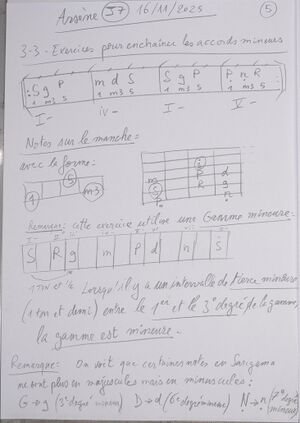 Arsène J7 16/11/2025 5
3-3 - Exercices pour enchaîner les accords mineurs
S g P m d S S g P P n R
1 m3 5 1 m3 5 1 m3 5 1 m3 5
I - iv - I - V -
Notes sur le manche :
avec la forme :
5
1 m3
m P d
S R g
P n
Remarque : cette exercice utilise une Gamme mineure :
S R g m P d n S
1 Tm et ½
Lorsqu'il y a un intervalle de tierce mineure
(1 tm et demi) entre le 1er et le 3° degré de la gamme,
la gamme est mineure.
Remarque : On voit que certaines notes en Sarigama
ne sont plus en majuscules mais en minuscules :
G → g (3° degré mineur) D → d (6° degré mineur) N → n (7° degré
mineur)